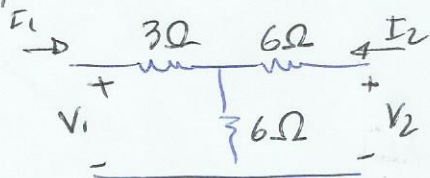 I₁ 3Ω 6Ω I₂
+ +
V₁ 6Ω V₂
- -